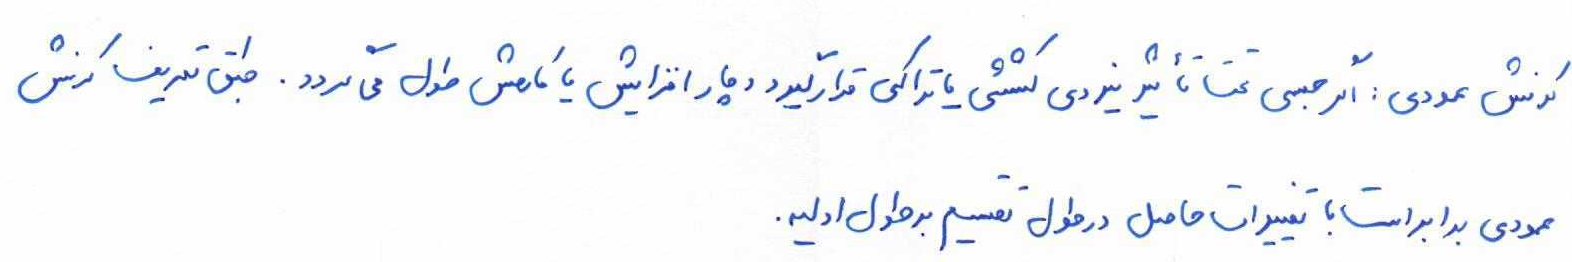 کرنش عمودی : اگر جسمی تحت تأثیر نیروی کششی یا تراکمی قرار گیرد دچار افزایش یا کاهش طول می گردد . طبق تعریف کرنش
عمودی برابر است با تغییرات حاصل در طول تقسیم بر طول اولیه .